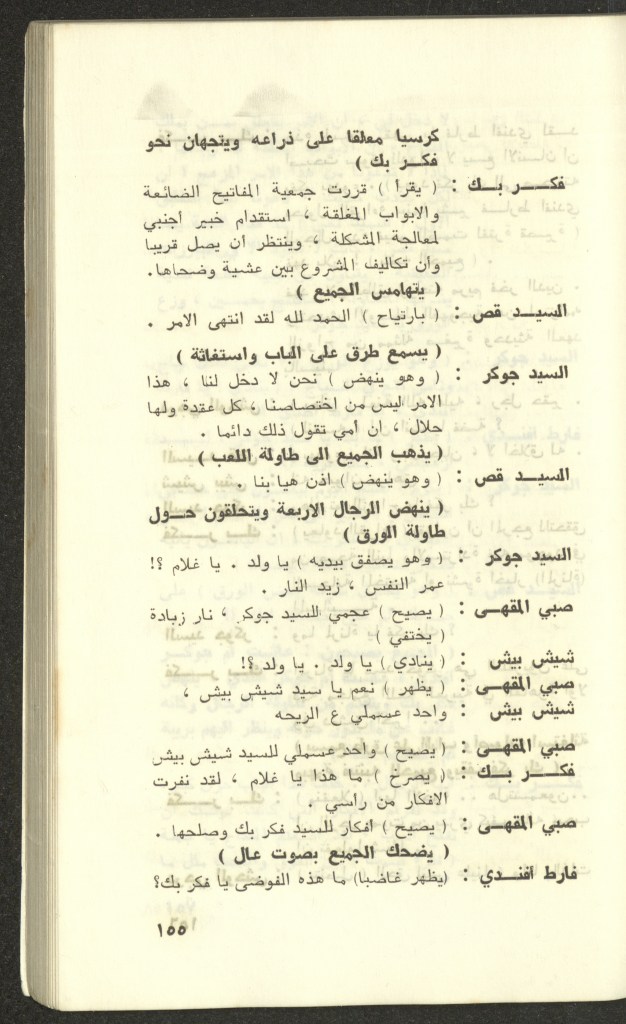 كرسيا معلقا على ذراعه ويتجهان نحو
فكـــر بك )
فكـــــر بـــك : ( يقرأ ) قررت جمعية المفاتيح الضائعة
والابواب المغلقة ، استقدام خبير اجنبي
لمعالجة المشكلة ، وينتظر ان يصل قريبا
وان تكاليف المشروع بين عشية وضحاها.
( يتهامس الجميع )
السيـــد قص : ( بارتياح ) الحمد لله لقد انتهى الامر .
( يسمع طرق على الباب واستغاثة )
السيد جوكر : ( وهو ينهض ) نحن لا دخل لنا ، هذا
الامر ليس من اختصاصنا ، كل عقدة ولها
حلال ، ان أمي تقول ذلك دائما .
( يذهب الجميع الى طاولة اللعب )
السيـــد قص : ( وهو ينهض ) اذن هيا بنا .
( ينهض الرجال الاربعة ويتحلقون حـــول
طاولة الورق )
السيد جوكر : ( وهو يصفق بيديه ) يا ولد . يا غلام ؟!
عمر النفس ، زيد النار .
صبي المقهــى : ( يصيح ) عجمي للسيد جوكر ، نار زيادة
( يختفي )
شيش بيش : ( ينادي ) يا ولد . يا ولد ؟!
صبي المقهــى : ( يظهر ) نعم يا سيد شيش بيش ،
شيش بيش : واحد عسملي ع الريحه
صبي المقهــى : ( يصيح ) واحد عسملي للسيد شيش بيش
فكـــر بــك : ( يصرخ ) ما هذا يا غلام ، لقد نفرت
الافكار من راسي .
صبي المقهــى : ( يصيح ) افكار للسيد فكر بك وصلحها .
( يضحك الجميع بصوت عال )
فارط افنــدي : (يظهر غاضبا) ما هذه الفوضى يا فكر بك؟
١٥٥